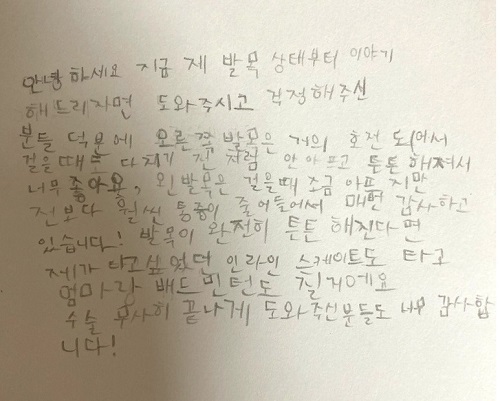 안녕 하세요 지금 제 발목 상태부터 이야기
해드리자면 도와주시고 걱정해주신
분들 덕분에 오른쪽 발목은 거의 호전 되어서
걸을때도 다치기 전 처럼 안아프고 튼튼해져서
너무 좋아요, 왼발목은 걸을때 조금 아프지만
전보다 훨씬 통증이 줄어들어서 매번 감사하고
있습니다! 발목이 완전히 튼튼해진다면
제가 타고싶었던 인라인 스케이트도 타고
엄마랑 배드민턴도 칠거에요
수술 무사히 끝나게 도와주신분들도 너무 감사합
니다!